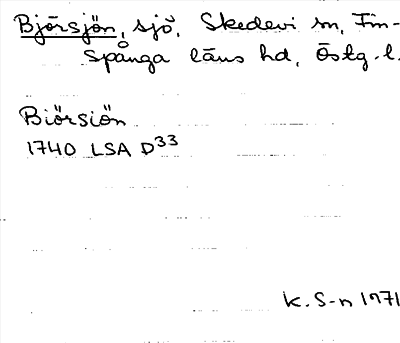 Björsjön, sjö, Skedevi sn, Fin-
spånga läns hd, Östg. l.
Biörsiön
1740 LSA D33
K. S-n 1971